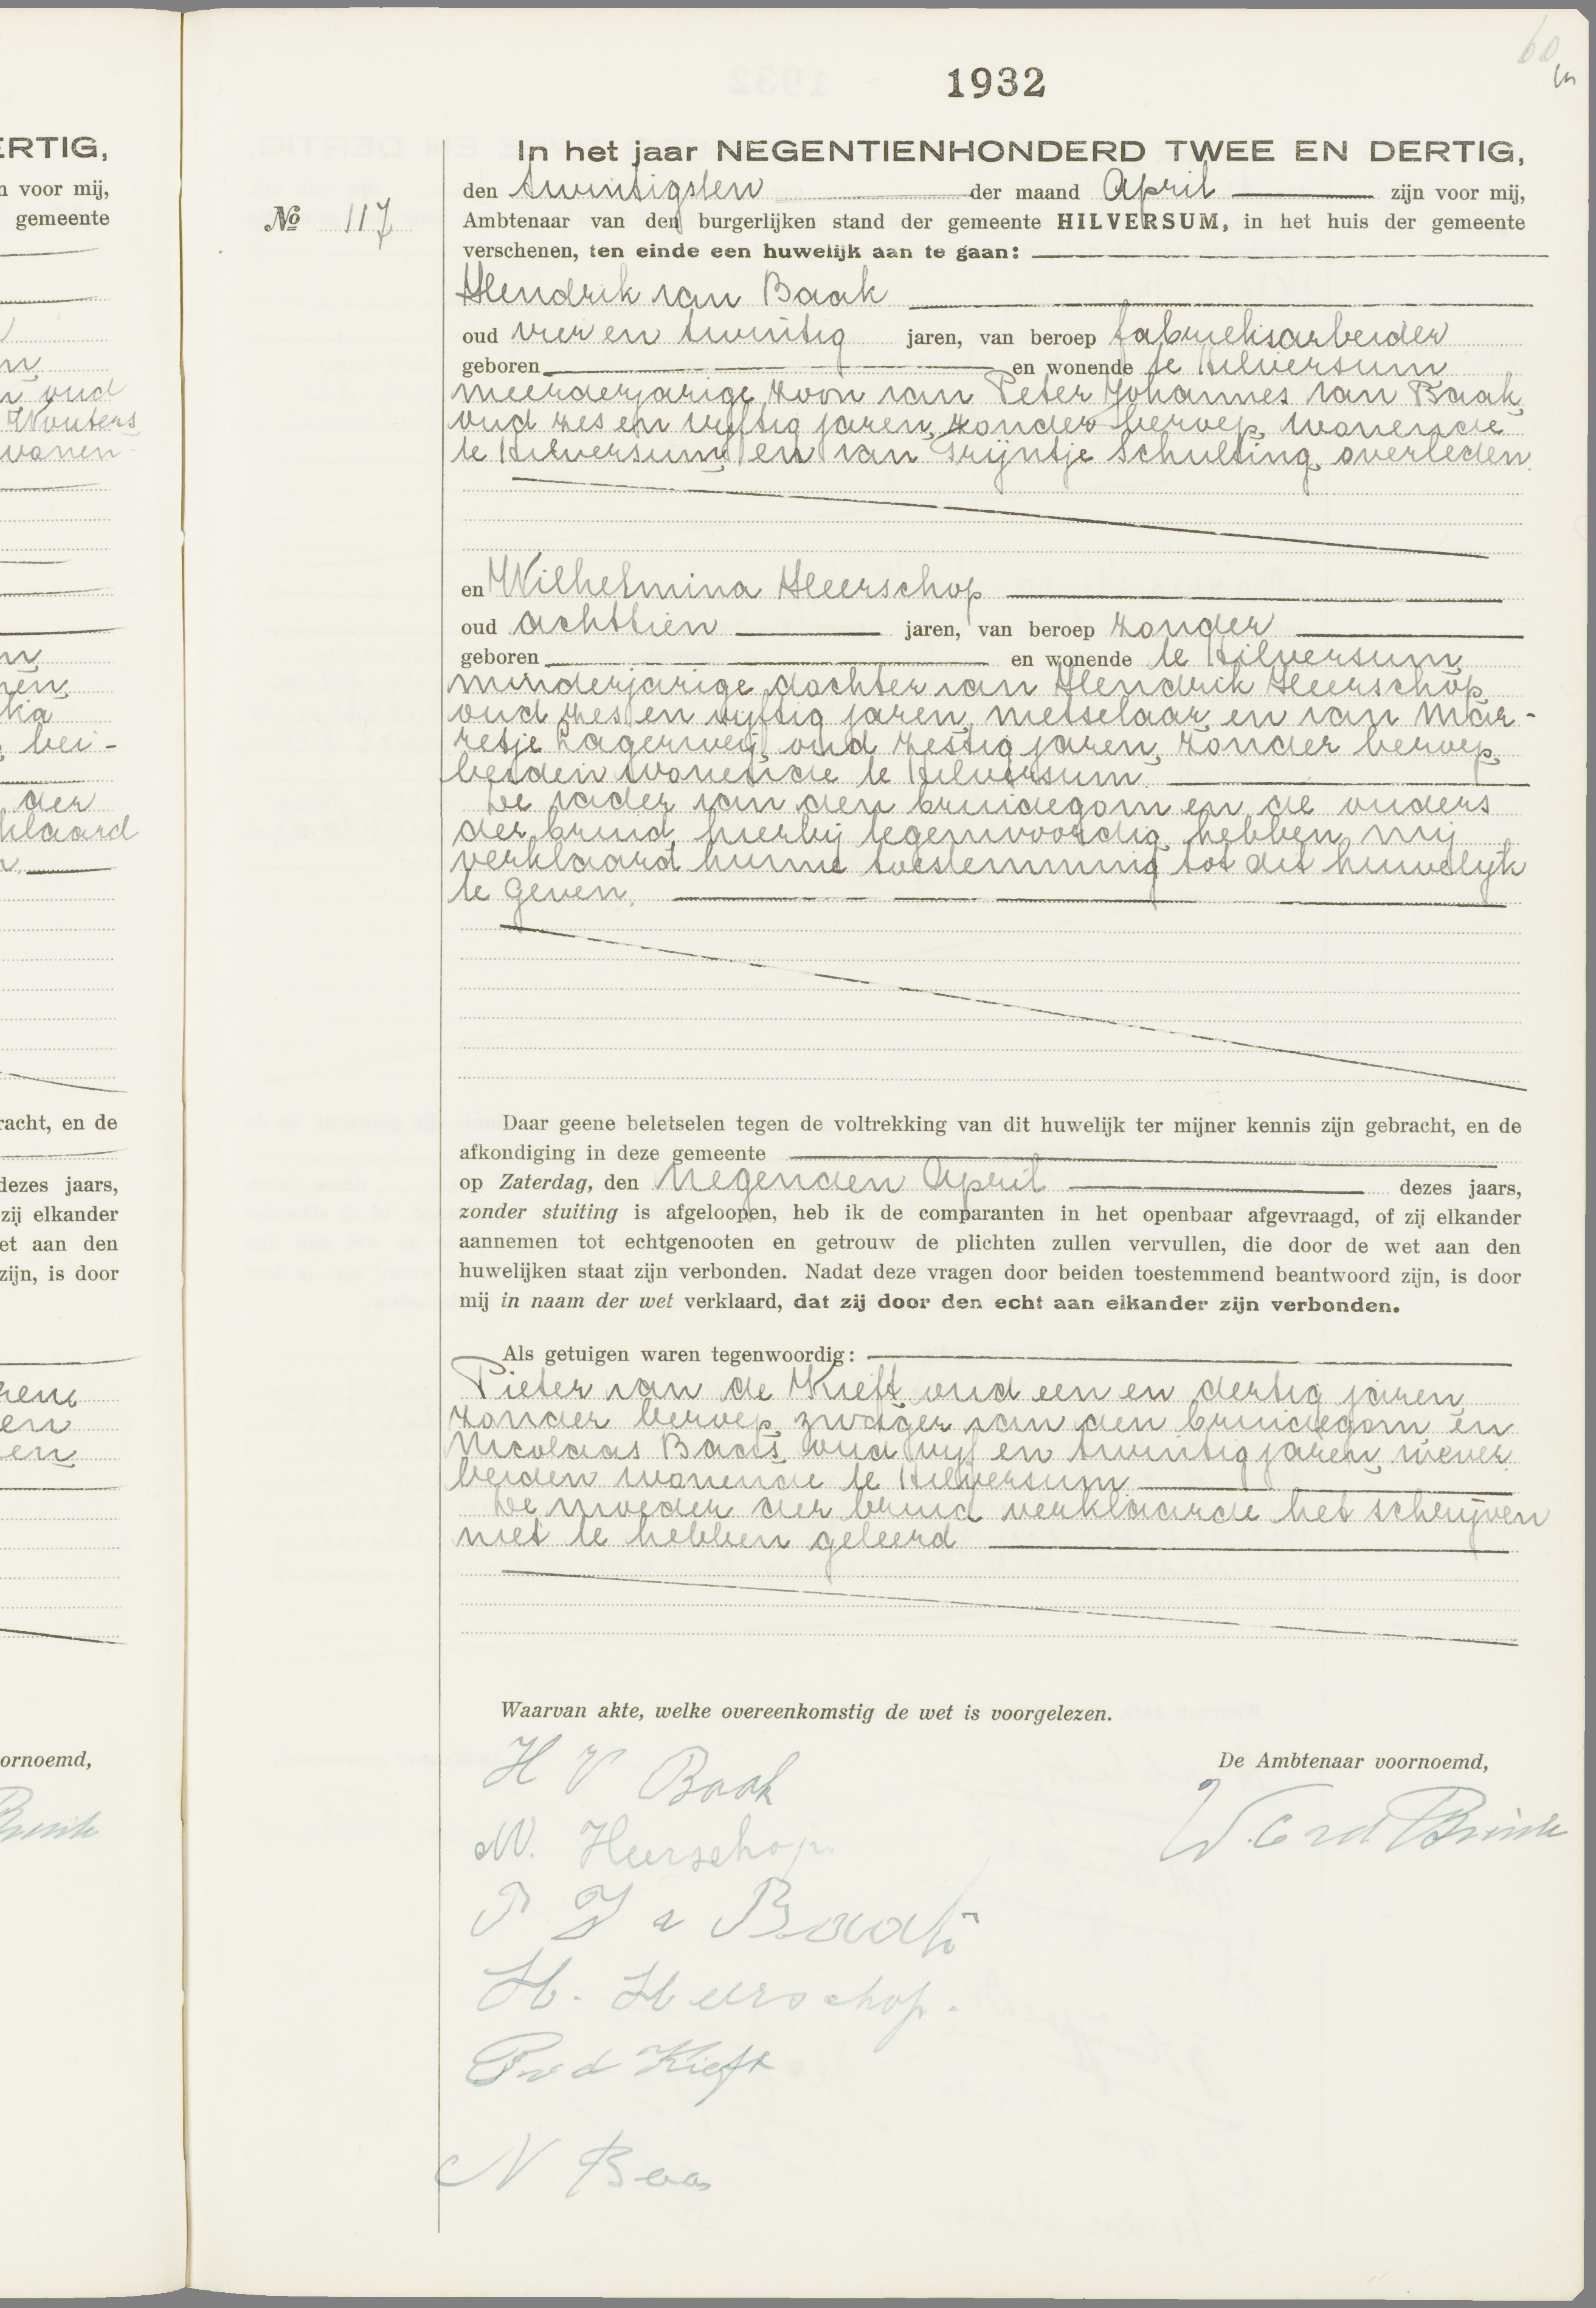 ERTIG,
n voor mij,
gemeente
n
n oud
Wouters
wonen-
n
nen
ka
bei-
der
klaard
n
racht, en de
dezes jaars,
zij elkander
et aan den
zijn, is door
ren
en
en
ornoemd,
Brink
60
1932
In het jaar NEGENTIENHONDERD TWEE EN DERTIG,
den twintigsten der maand April zijn voor mij,
No 117
Ambtenaar van den burgerlijken stand der gemeente HILVERSUM, in het huis der gemeente
verschenen, ten einde een huwelijk aan te gaan:
Hendrik van Baak
oud vier en twintig jaren, van beroep fabrieksarbeider
geboren en wonende te Hilversum
meerderjarige zoon van Peter Johannes van Baak,
oud zes en vijftig jaren, zonder beroep, wonende
te Hilversum, en van Trijntje Schulting, overleden.
en Wilhelmina Heerschop
oud achttien jaren, van beroep zonder
geboren en wonende te Hilversum
minderjarige dochter van Hendrik Heerschop,
oud zes en vijftig jaren, metselaar, en van Mar-
retje Lagerweij, oud zestig jaren, zonder beroep,
beiden wonende te Hilversum.
De vader van den bruidegom en de ouders
der bruid, hierbij tegenwoordig, hebben mij
verklaard hunne toestemming tot dit huwelijk
te geven.
Daar geene beletselen tegen de voltrekking van dit huwelijk ter mijner kennis zijn gebracht, en de
afkondiging in deze gemeente
op Zaterdag, den negenden April dezes jaars,
zonder stuiting is afgeloopen, heb ik de comparanten in het openbaar afgevraagd, of zij elkander
aannemen tot echtgenooten en getrouw de plichten zullen vervullen, die door de wet aan den
huwelijken staat zijn verbonden. Nadat deze vragen door beiden toestemmend beantwoord zijn, is door
mij in naam der wet verklaard, dat zij door den echt aan elkander zijn verbonden.
Als getuigen waren tegenwoordig:
Pieter van de Kieft, oud een en dertig jaren,
zonder beroep, zwager van den bruidegom en
Nicolaas Baas, oud vijf en twintig jaren, wever,
beiden wonende te Hilversum.
De moeder der bruid verklaarde het schrijven
niet te hebben geleerd
Waarvan akte, welke overeenkomstig de wet is voorgelezen.
De Ambtenaar voornoemd,
H V Baak
W. Heerschop.
P J v Baak
H. Heerschop.
P v d Kieft
N Baas
W. C v d Brink